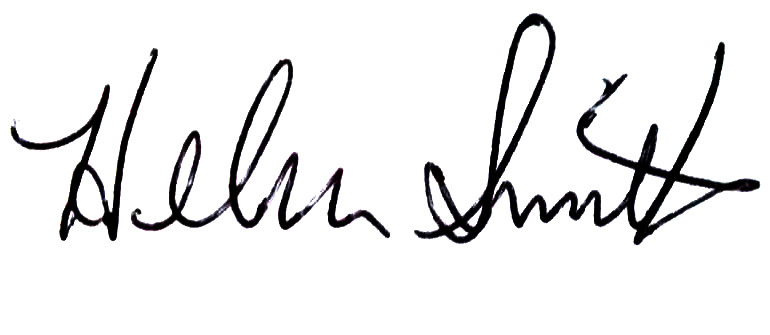 Helen Smith